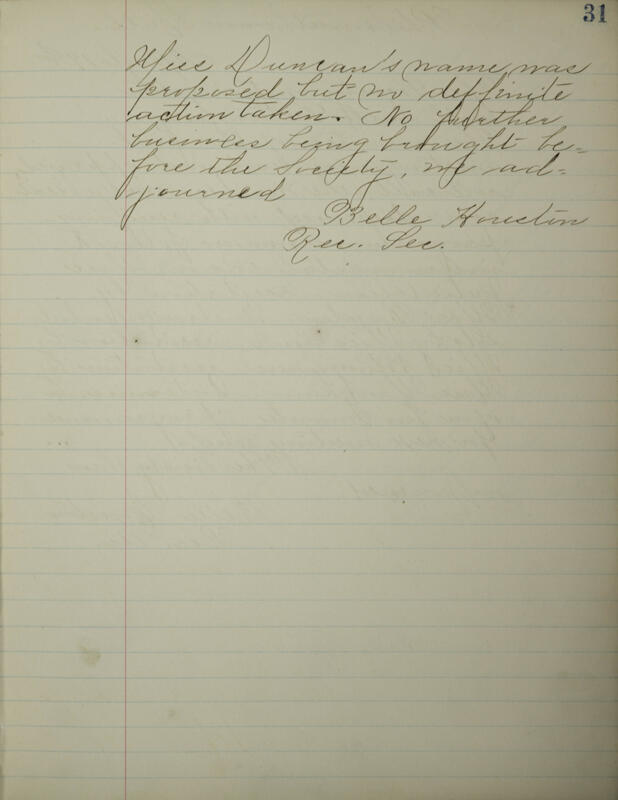 31
Miss Duncan's name was
proposed but no deffinite
action taken. No further
business being brought be=
fore the Society, we ad=
journed
Belle Houston
Rec. Sec.